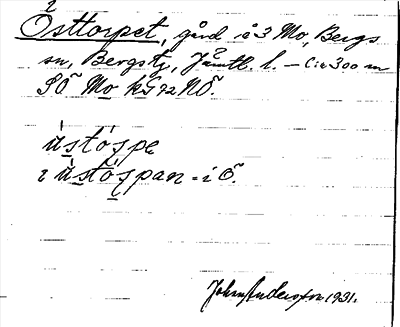 2
Östtorpet, gård i å 3 Mo, Bergs
sn, Bergs tg, Jämtl. l. – C:a 300 m
SÖ Mo kG 72 NÖ.
üstóspe
i üstóspan = i Ö.
John Andersson 1931.